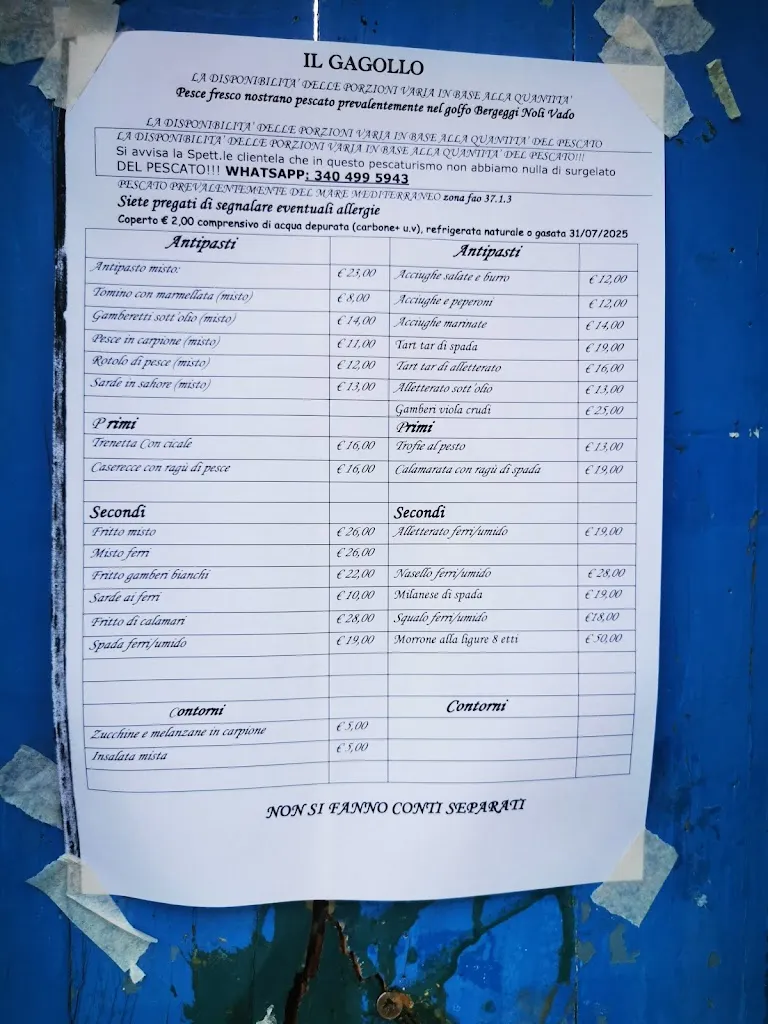 IL GAGOLLO
LA DISPONIBILITA' DELLE PORZIONI VARIA IN BASE ALLA QUANTITA'
Pesce fresco nostrano pescato prevalentemente nel golfo Bergeggi Noli Vado
LA DISPONIBILITA' DELLE PORZIONI VARIA IN BASE ALLA QUANTITA' DEL PESCATO
LA DISPONIBILITA' DELLE PORZIONI VARIA IN BASE ALLA QUANTITA' DEL PESCATO!!!
Si avvisa la Spett.le clientela che in questo pescaturismo non abbiamo nulla di surgelato
DEL PESCATO!!! WHATSAPP: 340 499 5943
PESCATO PREVALENTEMENTE DEL MARE MEDITERRANEO zona fao 37.1.3
Siete pregati di segnalare eventuali allergie
Coperto € 2,00 comprensivo di acqua depurata (carbone+ u.v), refrigerata naturale o gasata 31/07/2025
Antipasti Antipasti
Antipasto misto: € 23,00 Acciughe salate e burro € 12,00
Tomino con marmellata (misto) € 8,00 Acciughe e peperoni € 12,00
Gamberetti sott'olio (misto) € 14,00 Acciughe marinate € 14,00
Pesce in carpione (misto) € 11,00 Tart tar di spada € 19,00
Rotolo di pesce (misto) € 12,00 Tart tar di alletterato € 16,00
Sarde in sahore (misto) € 13,00 Alletterato sott'olio € 13,00
Gamberi viola crudi € 25,00
Primi Primi
Trenetta Con cicale € 16,00 Trofie al pesto € 13,00
Caserecce con ragù di pesce € 16,00 Calamarata con ragù di spada € 19,00
Secondi Secondi
Fritto misto € 26,00 Alletterato ferri/umido € 19,00
Misto ferri € 26,00
Fritto gamberi bianchi € 22,00 Nasello ferri/umido € 28,00
Sarde ai ferri € 10,00 Milanese di spada € 19,00
Fritto di calamari € 28,00 Squalo ferri/umido €18,00
Spada ferri/umido € 19,00 Morrone alla ligure 8 etti € 50,00
Contorni Contorni
Zucchine e melanzane in carpione € 5,00
Insalata mista € 5,00
NON SI FANNO CONTI SEPARATI